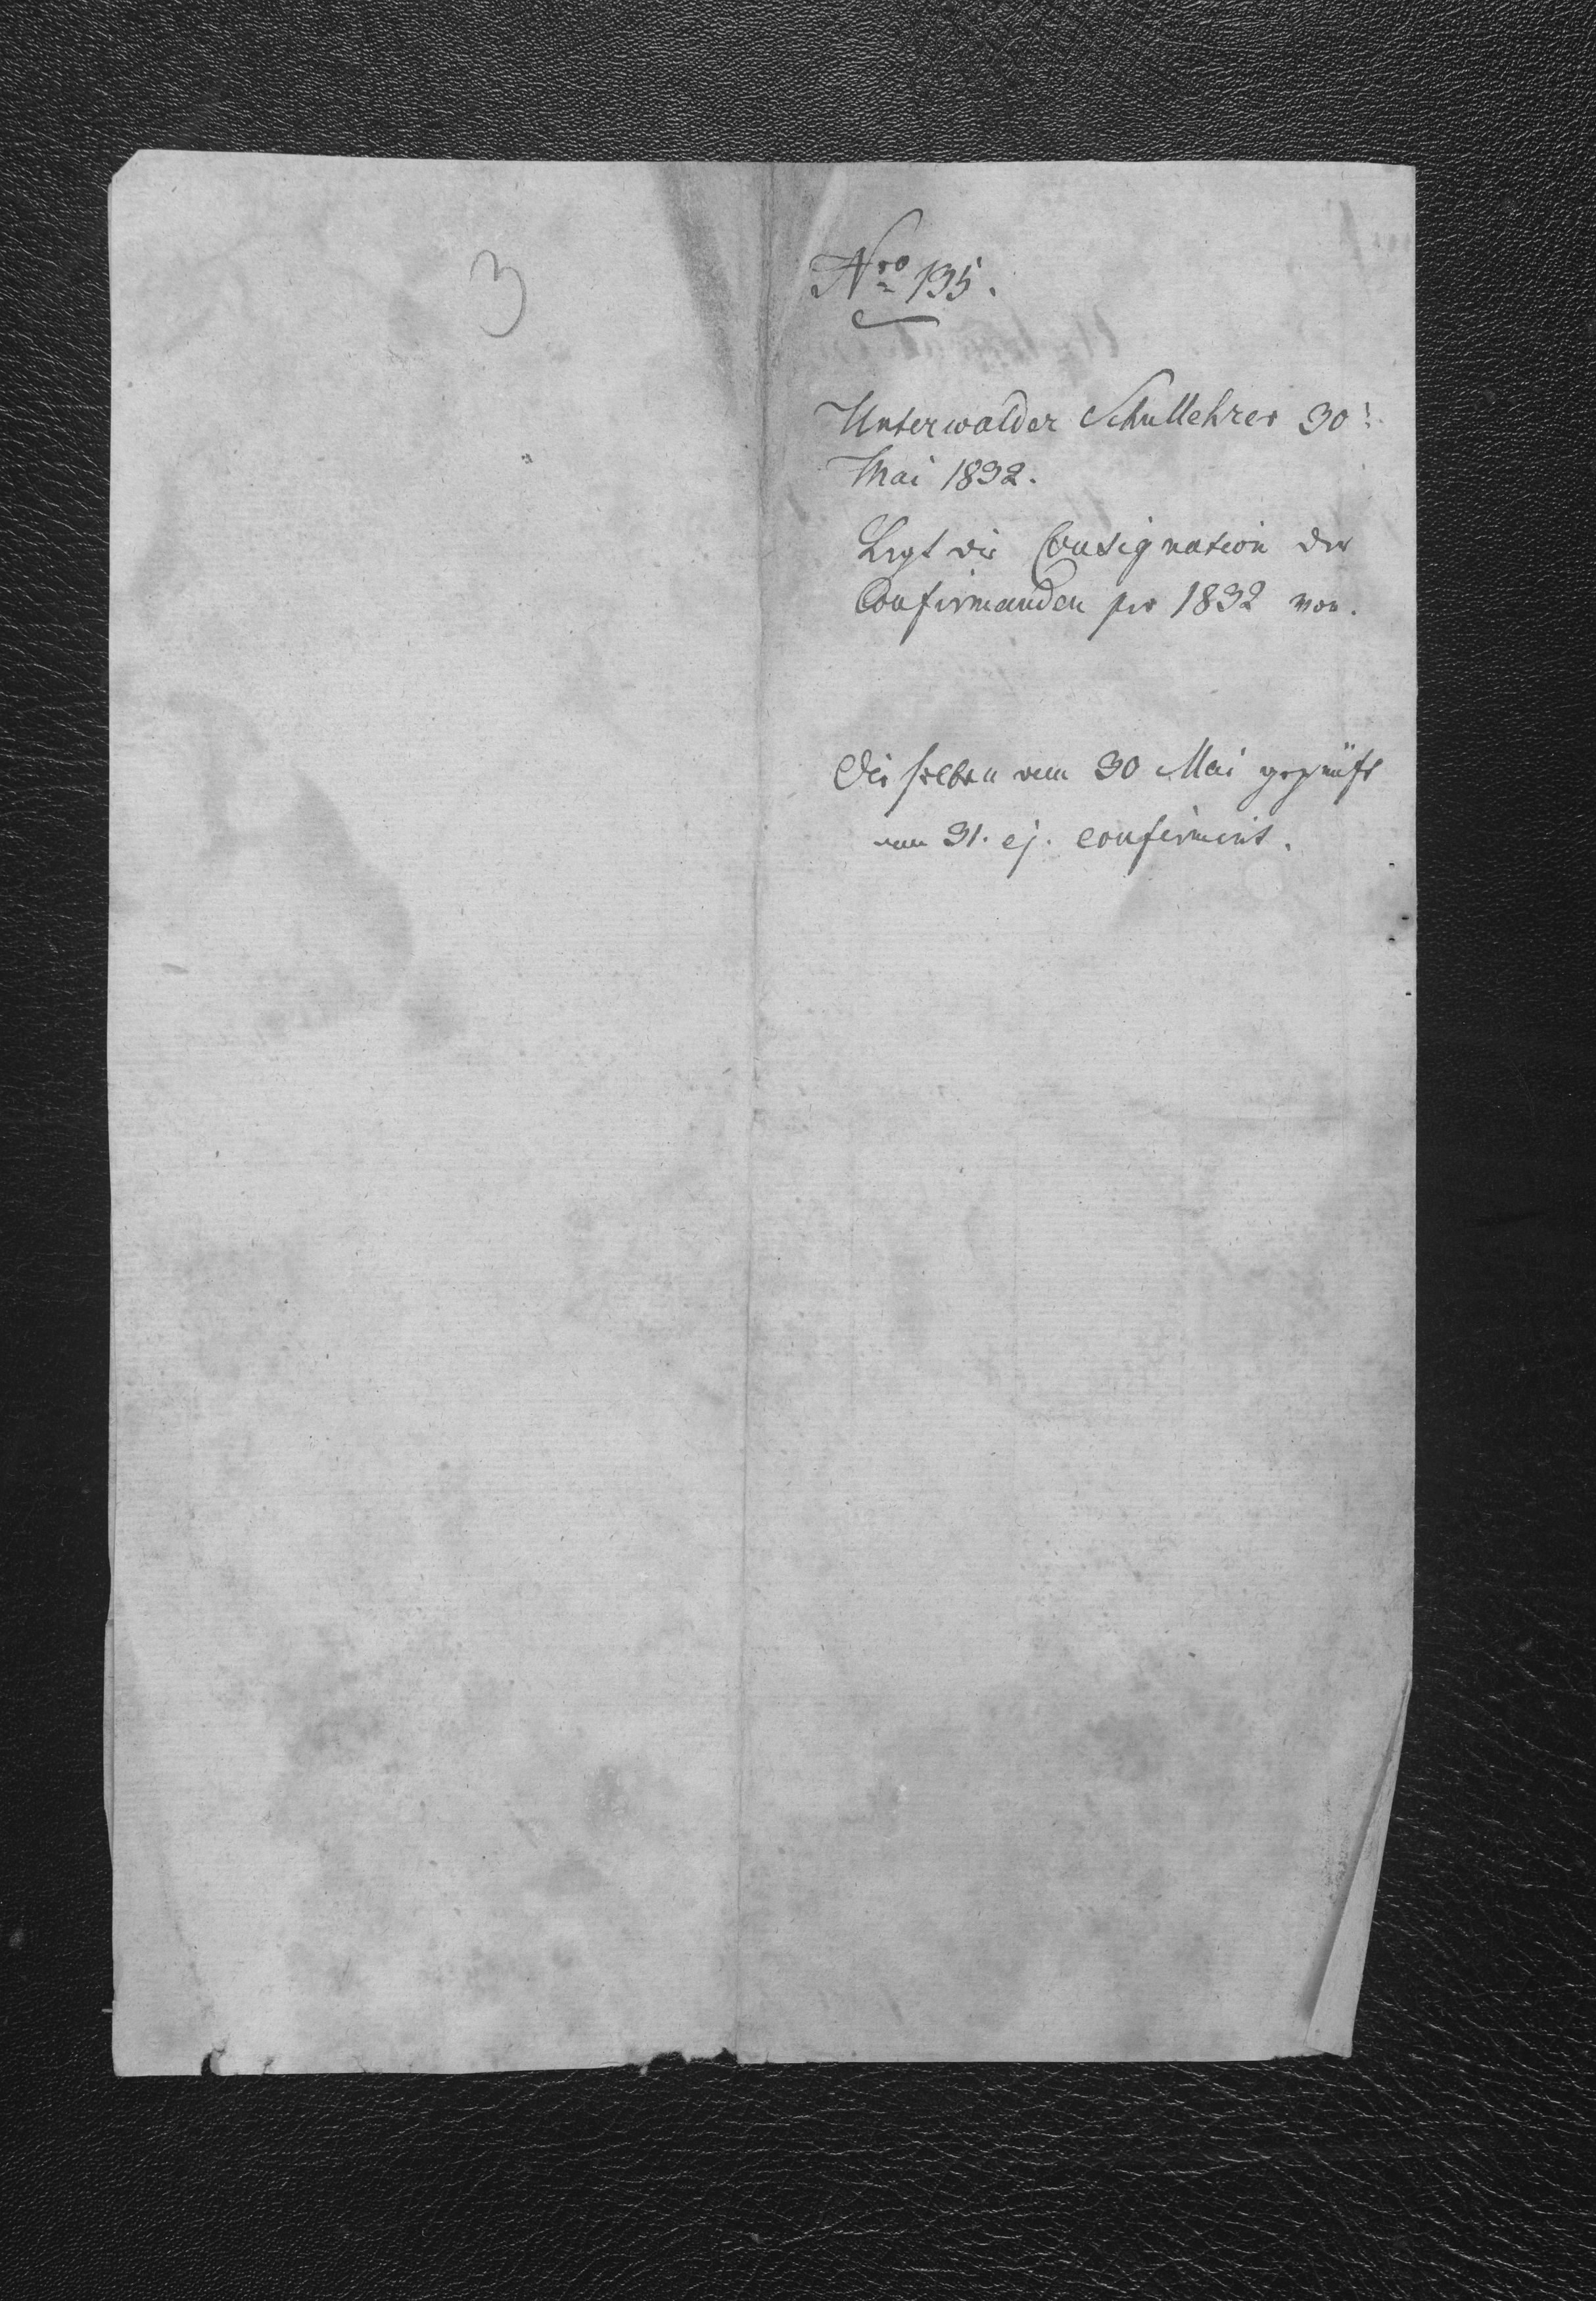 3
Nro 135.
Unterwalder Schullehrer 30t
Mai 1832.
Legt die Consignation der
Confirmanden pro 1832 vor.
Dieselben am 30 Mai geprüft
am 31. ej. confirmirt.